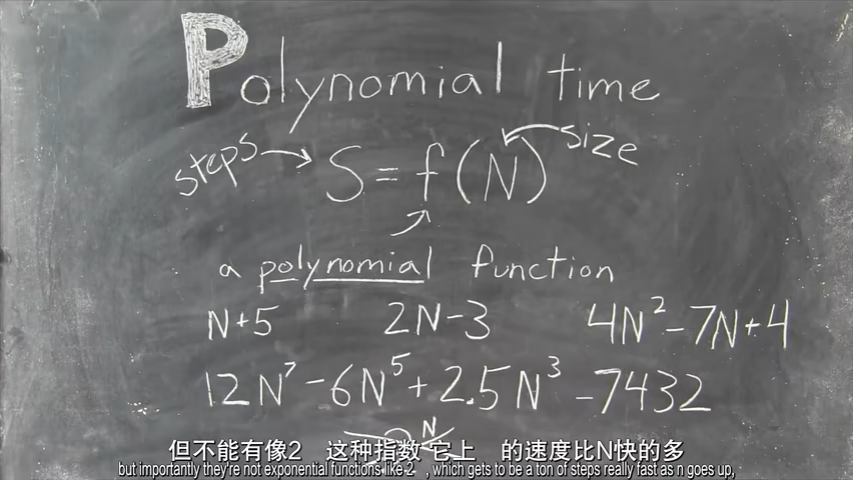 Polynomial time
steps → S = f(N) size
a polynomial function
N+5 2N-3 4N²-7N+4
12N⁷-6N⁵+2.5N³-7432
2ᴺ
但不能有像2 这种指数 它上 的速度比N快的多
but importantly they're not exponential functions like 2 , which gets to be a ton of steps really fast as n goes up,